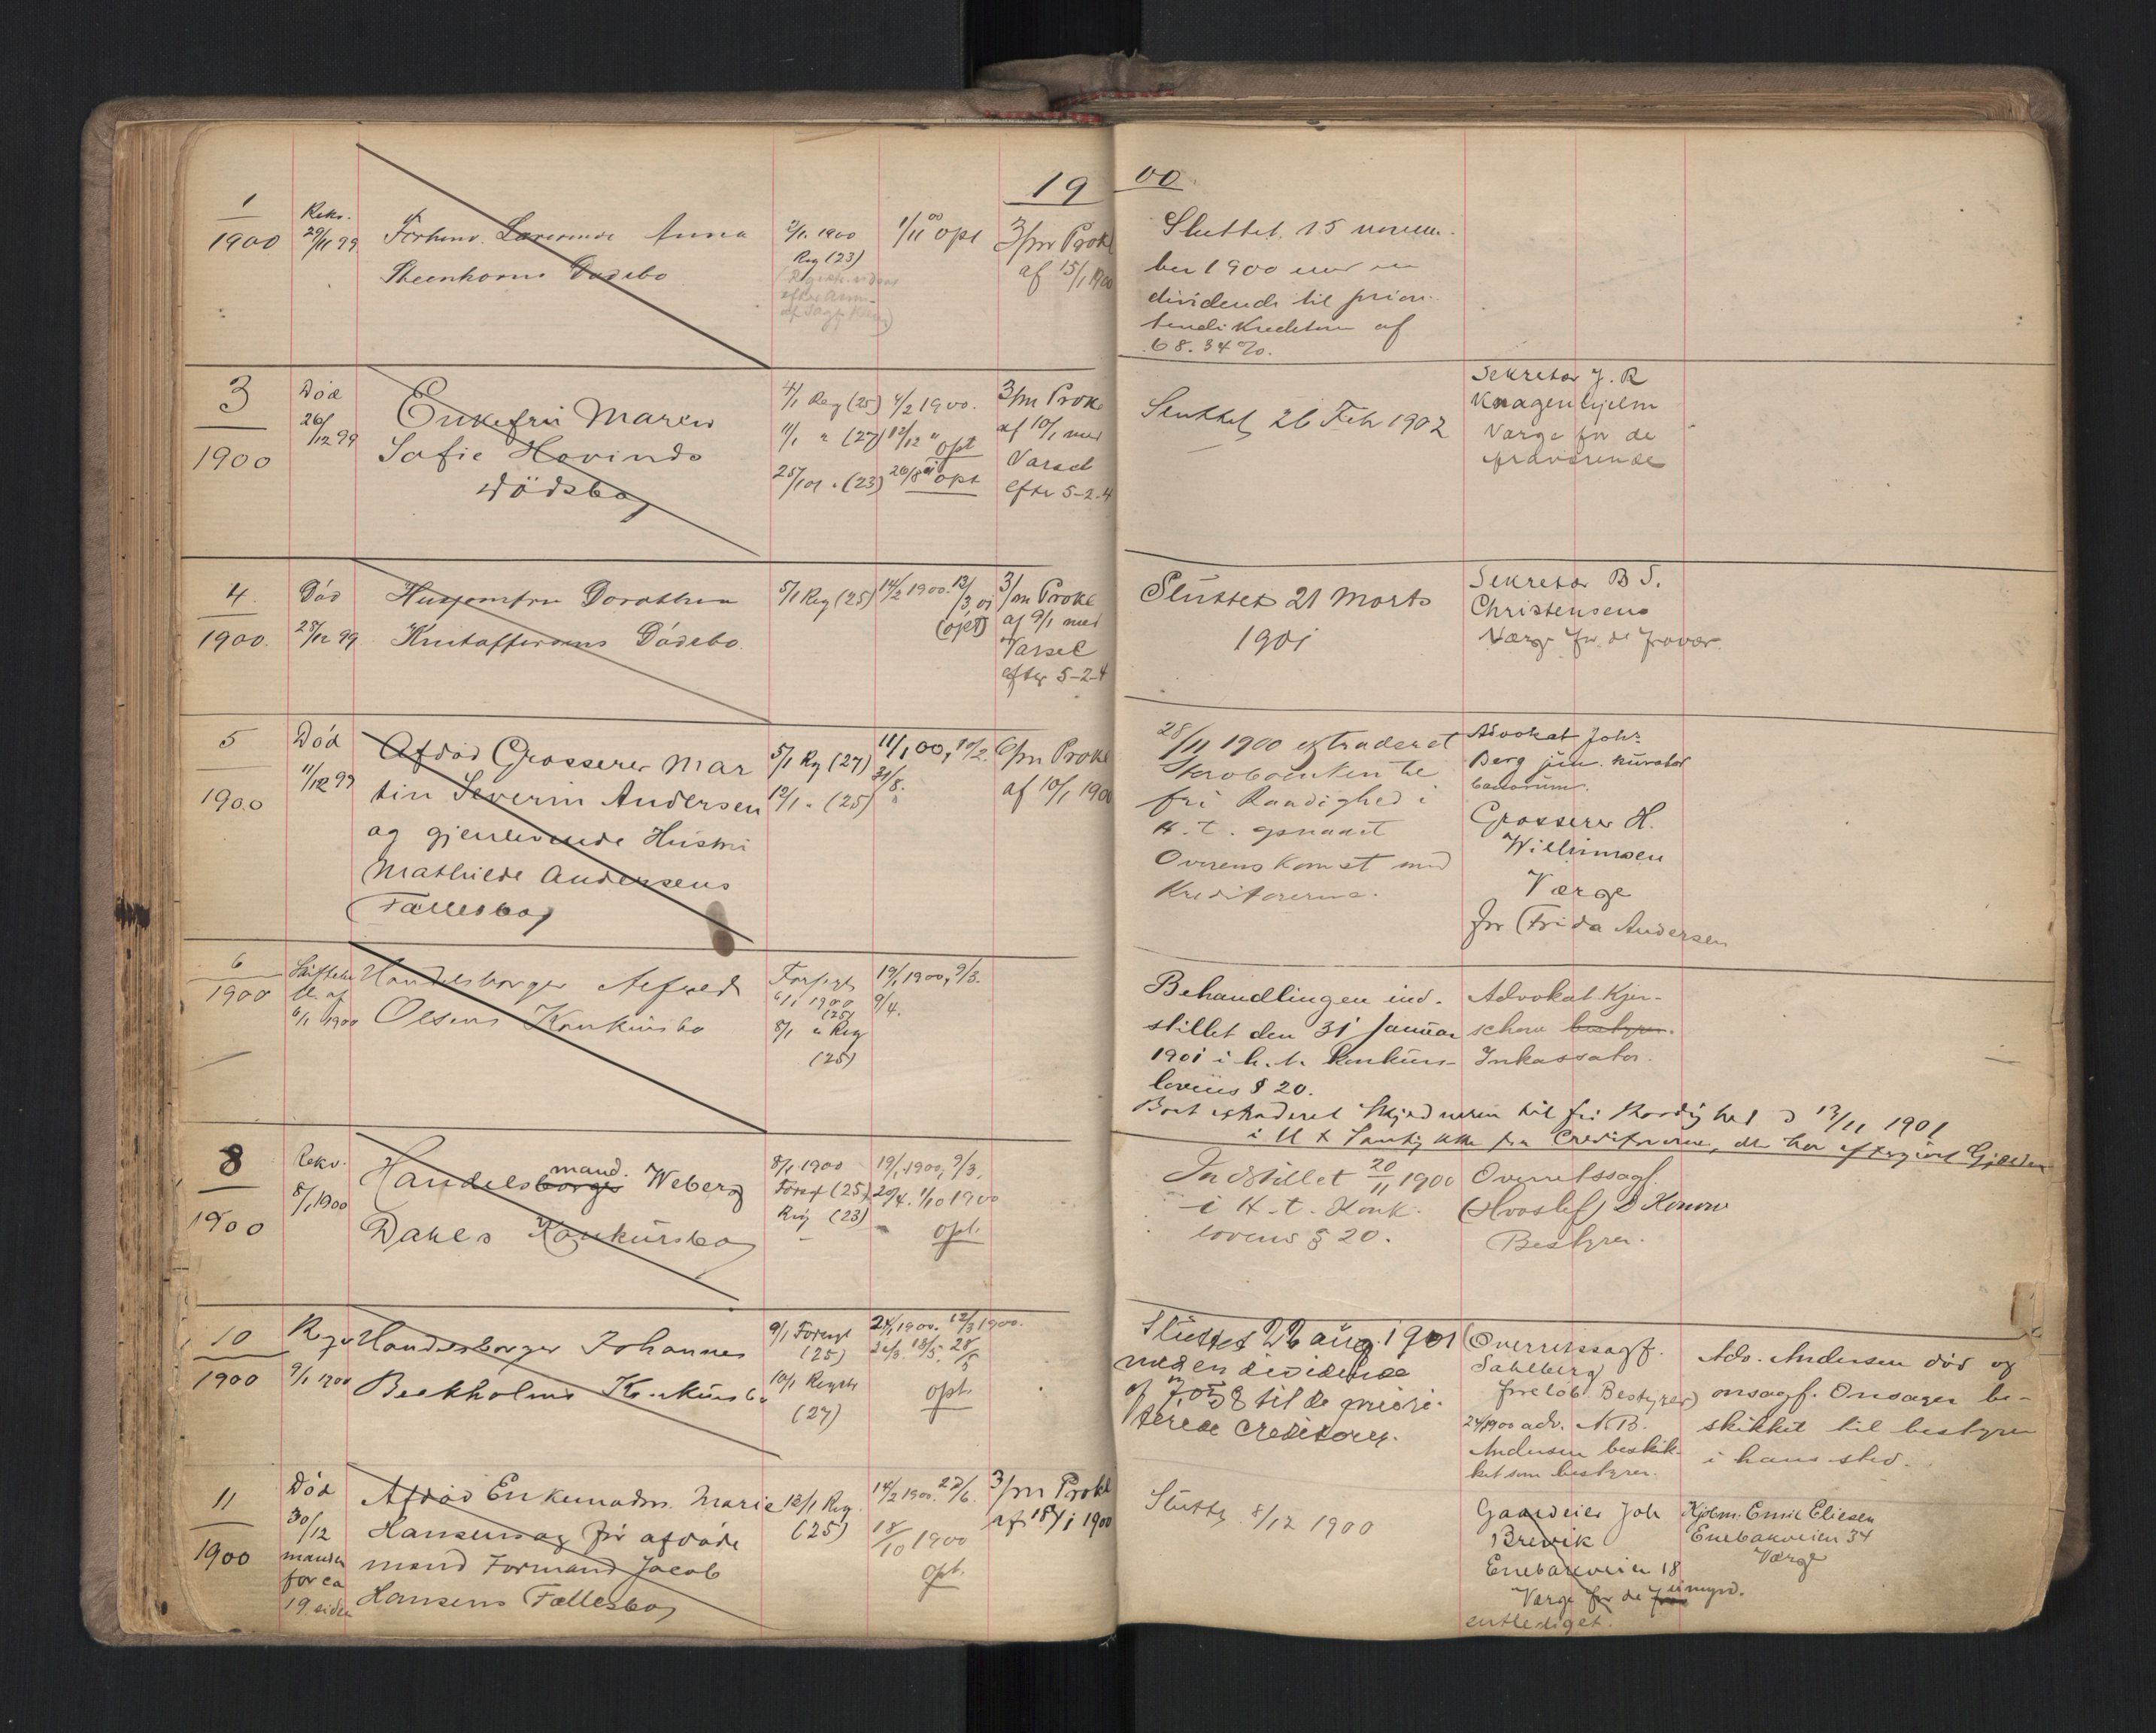 19 00
1
1900
Rekv.
29/11 99
Forhenv. Lærerinde Anna
Steenhorns Dødsbo
2/1. 1900
Reg (23)
1/11 00 opt
3/m Prokl
af 15/1 1900
Sluttet. 15 novem-
ber 1900 med en
dividende til priori-
68.34%.
3
1900
Död
26/12 99
Enkefru Maren
Sofie Hovinds
Dödsbo
4/1 Reg (25)
11/1 " (27)
25/1 01 " (23)
4/2 1900.
12/12 " opt
26/8 01 opt
3/m Prokl
af 10/1 med
Varsel
efter 5-2-4
Sluttet 26 Feb 1902
Sekretær J. R
Knagenhjelm
Værge for de
fraværende
4.
1900.
Död
28/12 99
Husjomfru Dorothea
Kristoffersens Dödsbo.
5/1 Reg (25)
14/2 1900. 13/3 01
(opt)
3/m Prokl
af 9/1 med
Varsel
efter 5-2-4
Sluttet 21 Marts
1901
Sekretær B S.
Christensens
Værge for de fravær.
5
1900
Död
11/12 99
Afdöd Grosserer Mar
tin Severin Andersen
og gjenlevende Hustru
Mathilde Andersens
Fællesbo
5/1 Reg (27)
12/1 " (25)
11/1 00, 10/2.
31/8. "
6/m Prokl
af 10/1 1900
28/11 1900 extraderet
Stervboenken til
fri Raadighed i
H. t. opnaaet
Overenskomst med
Kreditorerne.
Advokat Johs
Berg jun. kurator
bonorum.
Grosserer H.
Willumsen
Værge
for Frida Andersen
6
1900
Skifteret
af
6/1 1900
Handelsborger Alfred
Olsens Konkursbo
Forsegl
6/1 1900
(25)
8/1 " Reg
(25)
19/1 1900, 9/3.
9/4.
Behandlingen ind-
stillet den 31 Januar
1901 i h. t. konkurs-
lovens § 20.
Boet extraderet Skyldneren til fri Raadighed d 13/11 1901
i H t Samtykke fra Creditorerne, der har eftergivet Gjælden
Advokat Kjer-
schow bestyrer.
Inkassator.
8
1900
Rekv.
8/1 1900
mand.
Handelsborger Weberg
Dahls Konkursbo
8/1 1900
Forsegl (25)
Reg (23)
19/1 1900, 9/3.
20/4. 1/10 1900
opt.
Indstillet 20/11 1900
i H. t. Konk.
lovens § 20.
Overretssagf.
(Hroslef) D Konow
Bestyrer.
10
1900
9/1 1900
Handelsborger Johannes
Beckholms Konkursbo
9/1 Forsegl
(25)
10/1 Regstr
(27)
opt.
Sluttet 22 aug. 1901
med en dividende
til de priori-
terede creditorer.
Overretssagf.
Sahlberg
foreløb. Bestyrer
24/1 1900 adv. N. B.
Andersen beskik-
ket som bestyrer.
Adv. Andersen död og
orsagf. Onsager be-
skikket til bestyrer
i hans sted.
11
1900
Död
30/12
manden
for ca
19 siden
Afdöd Enkemadm. Marie
Hansens og før afdøde
mand Formand Jacob
Hansens Fællesbo
12/1 Reg.
(25)
14/2 1900. 22/6.
18/10 1900
opt.
3/m Prokl
af 18/1 1900
Sluttet 8/12 1900
Gaardeier Joh
Brevik
Enebakveien 18
Værge for de umynd.
entlediget.
Kjøbm. Emil Eliesen
Enebakveien 34
Værge